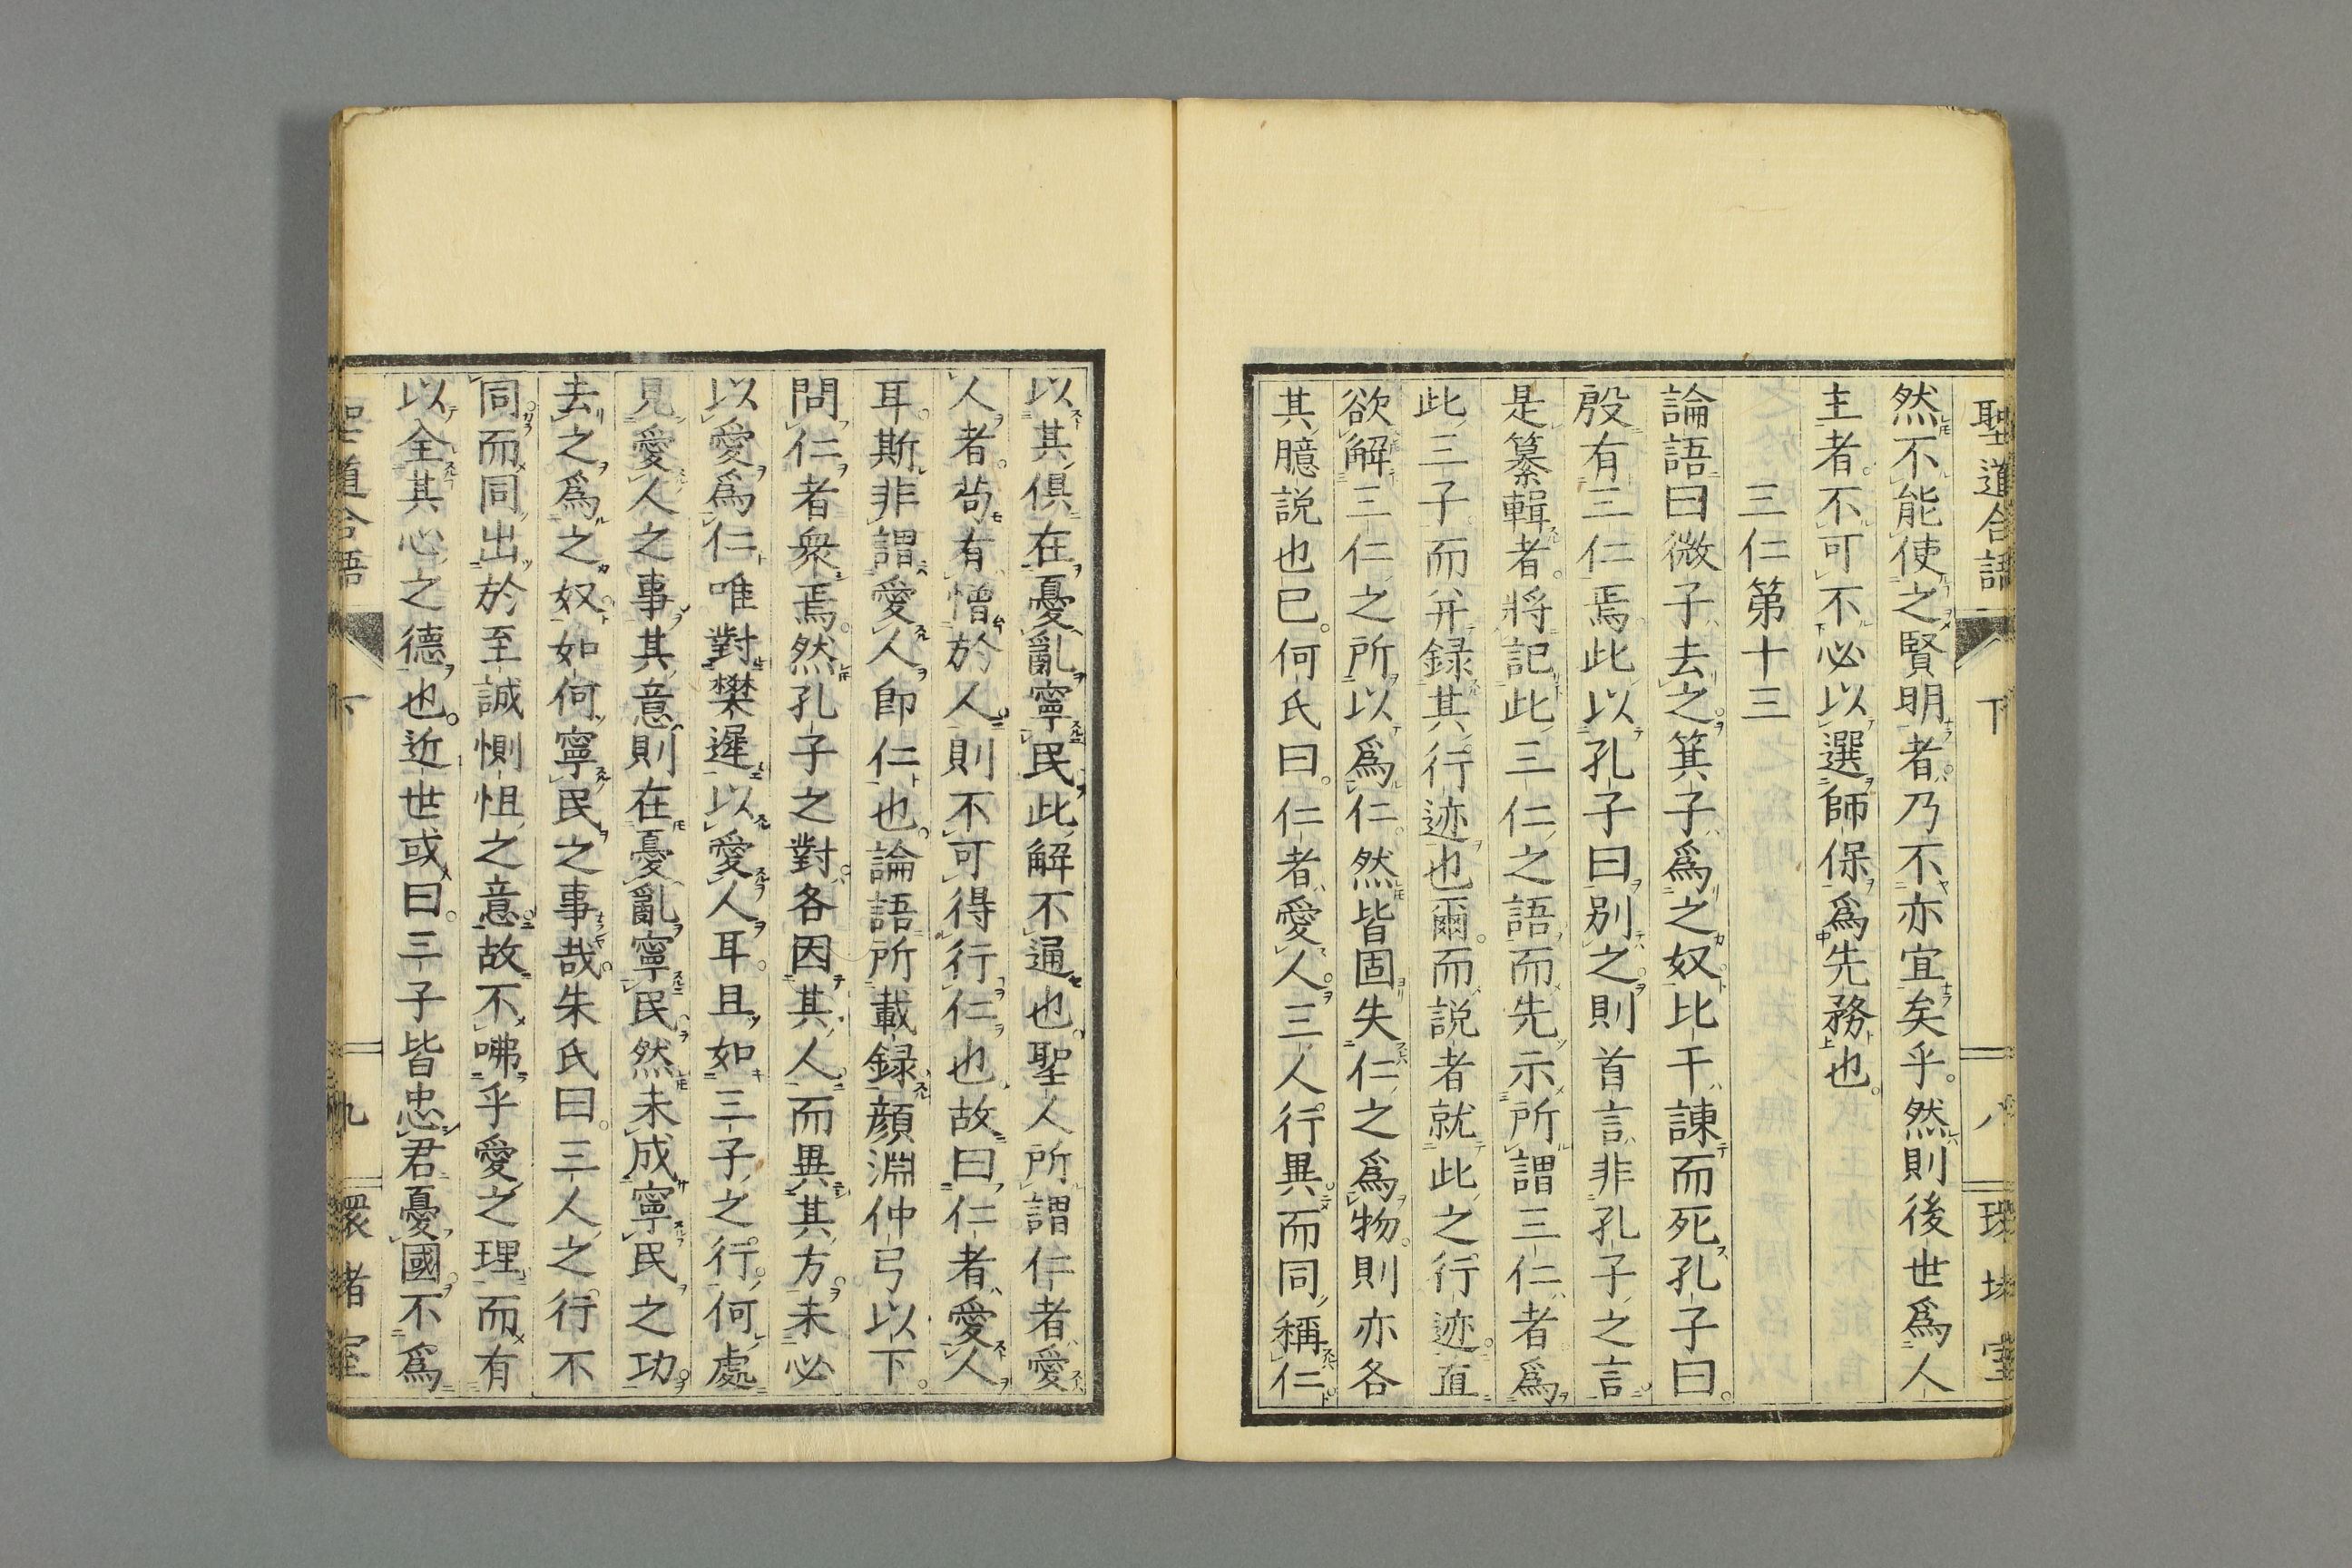 聖道合語 下 八
然不能使之賢明者。乃不亦宜矣乎。然則後世爲人
主者。不可不必以選師保爲先務也。
三仁第十三
論語曰微子去之。箕子爲之奴。比干諫而死孔子曰。
殷有三仁焉此以孔子曰別之則首言非孔子之言。
是纂輯者。將記此三仁之語而先示所謂三仁者爲
此三子而幷録其行迹也爾。而説者就此之行迹。直
欲解三仁之所以爲仁。然皆固失仁之爲物。則亦各
其臆説也已。何氏曰。仁者愛人。三人行異而同稱仁。
以其俱在憂亂寧民此解不通也。聖人所謂仁者愛
人者。苟有憎於人。則不可得行仁也故曰仁者愛人
耳。斯非謂愛人卽仁也。論語所載録顔淵仲弓以下。
問仁者衆焉。然孔子之對。各因其人而異其方。未必
以愛爲仁唯對樊遲以愛人耳。且如三子之行。何處
見愛人之事其意則在憂亂寧民然未成寧民之功。
去之爲之奴。如何寧民之事哉。朱氏曰。三人之行不
同。而同出於至誠惻怛之意。故不咈乎愛之理而有
以全其心之德也。近世或曰。三子皆忠君憂國。不爲
聖道合語 下 九 環堵室